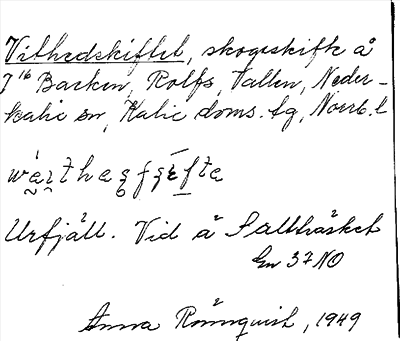 Vithedskiftet, skogsskifte å
7¹⁶ Backen, Rolfs, Vallen, Neder-
kalix sn, Kalix doms. tg, Norrb. l.
Urfjäll. Vid å Salthåsket
En 37 NO
Anna Rönnquist, 1949